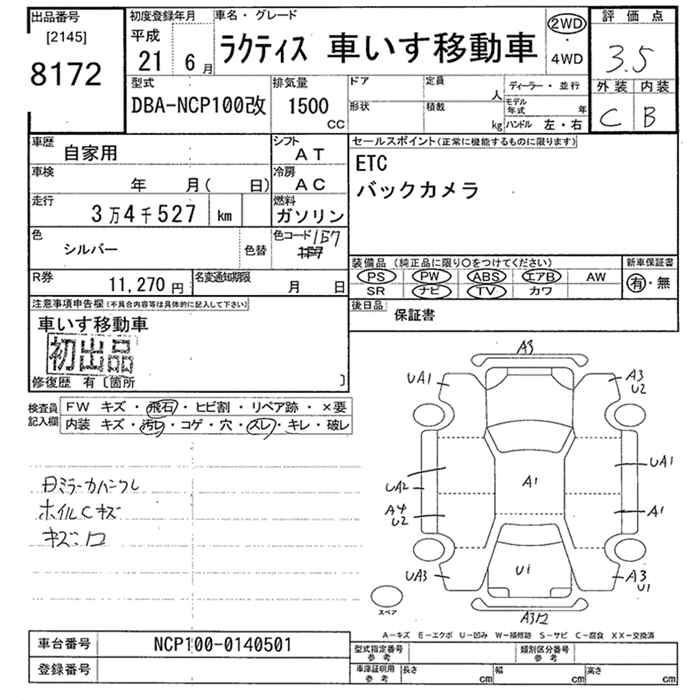 出品番号
[2145]
8172
初度登録年月
平成
21 6月
車名・グレード
ラクティス 車いす移動車
2WD
・
4WD
評価点
3.5
外装 内装
C B
型式
DBA-NCP100改
排気量
1500
CC
ドア
定員
人
形状
積載
kg
ディーラー・並行
モデル年式 年
ハンドル 左・右
車歴
自家用
シフト
AT
車検
年 月( 日)
冷房
AC
走行
3万4千527 km
燃料
ガソリン
色
シルバー
色替
色コード 1E7
R券
11,270円
名変通知期限
月 日
セールスポイント(正常に機能するものに限ります)
ETC
バックカメラ
装備品(純正品に限り○をつけてください)
PS PW ABS エアB AW
SR ナビ TV カワ
新車保証書
有・無
後日品
保証書
注意事項申告欄(不具合内容等は具体的に記入して下さい)
車いす移動車
初出品
修復歴 有〔箇所 〕
検査員
記入欄
FW キズ・飛石・ヒビ割・リペア跡・×要
内装 キズ・汚レ・コゲ・穴・スレ・キレ・破レ
ホイルCキズ
A3
UA1
A3
U2
UA2
A4
U2
A1
UA1
A1
UA3
U1
A3
U1
A3 12
スペア
A-キズ E-エクボ U-凹み W-補修跡 S-サビ C-腐食 XX-交換済
車台番号
NCP100-0140501
登録番号
型式指定番号
参考
類別区分番号
参考
車庫証明用
参考
長さ cm
幅 cm
高さ cm